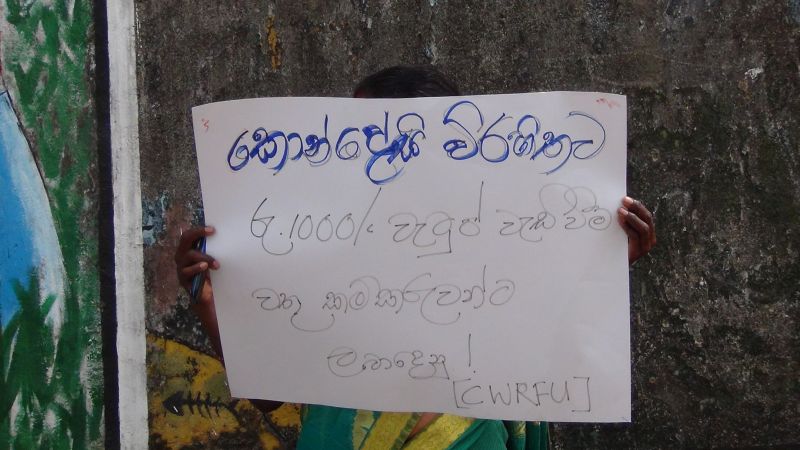 කොන්දේසි විරහිතව
රු.1000/- වැටුප් වැඩිවීම
වතු කම්කරුවන්ට
ලබාදෙනු !
[CWRFU]